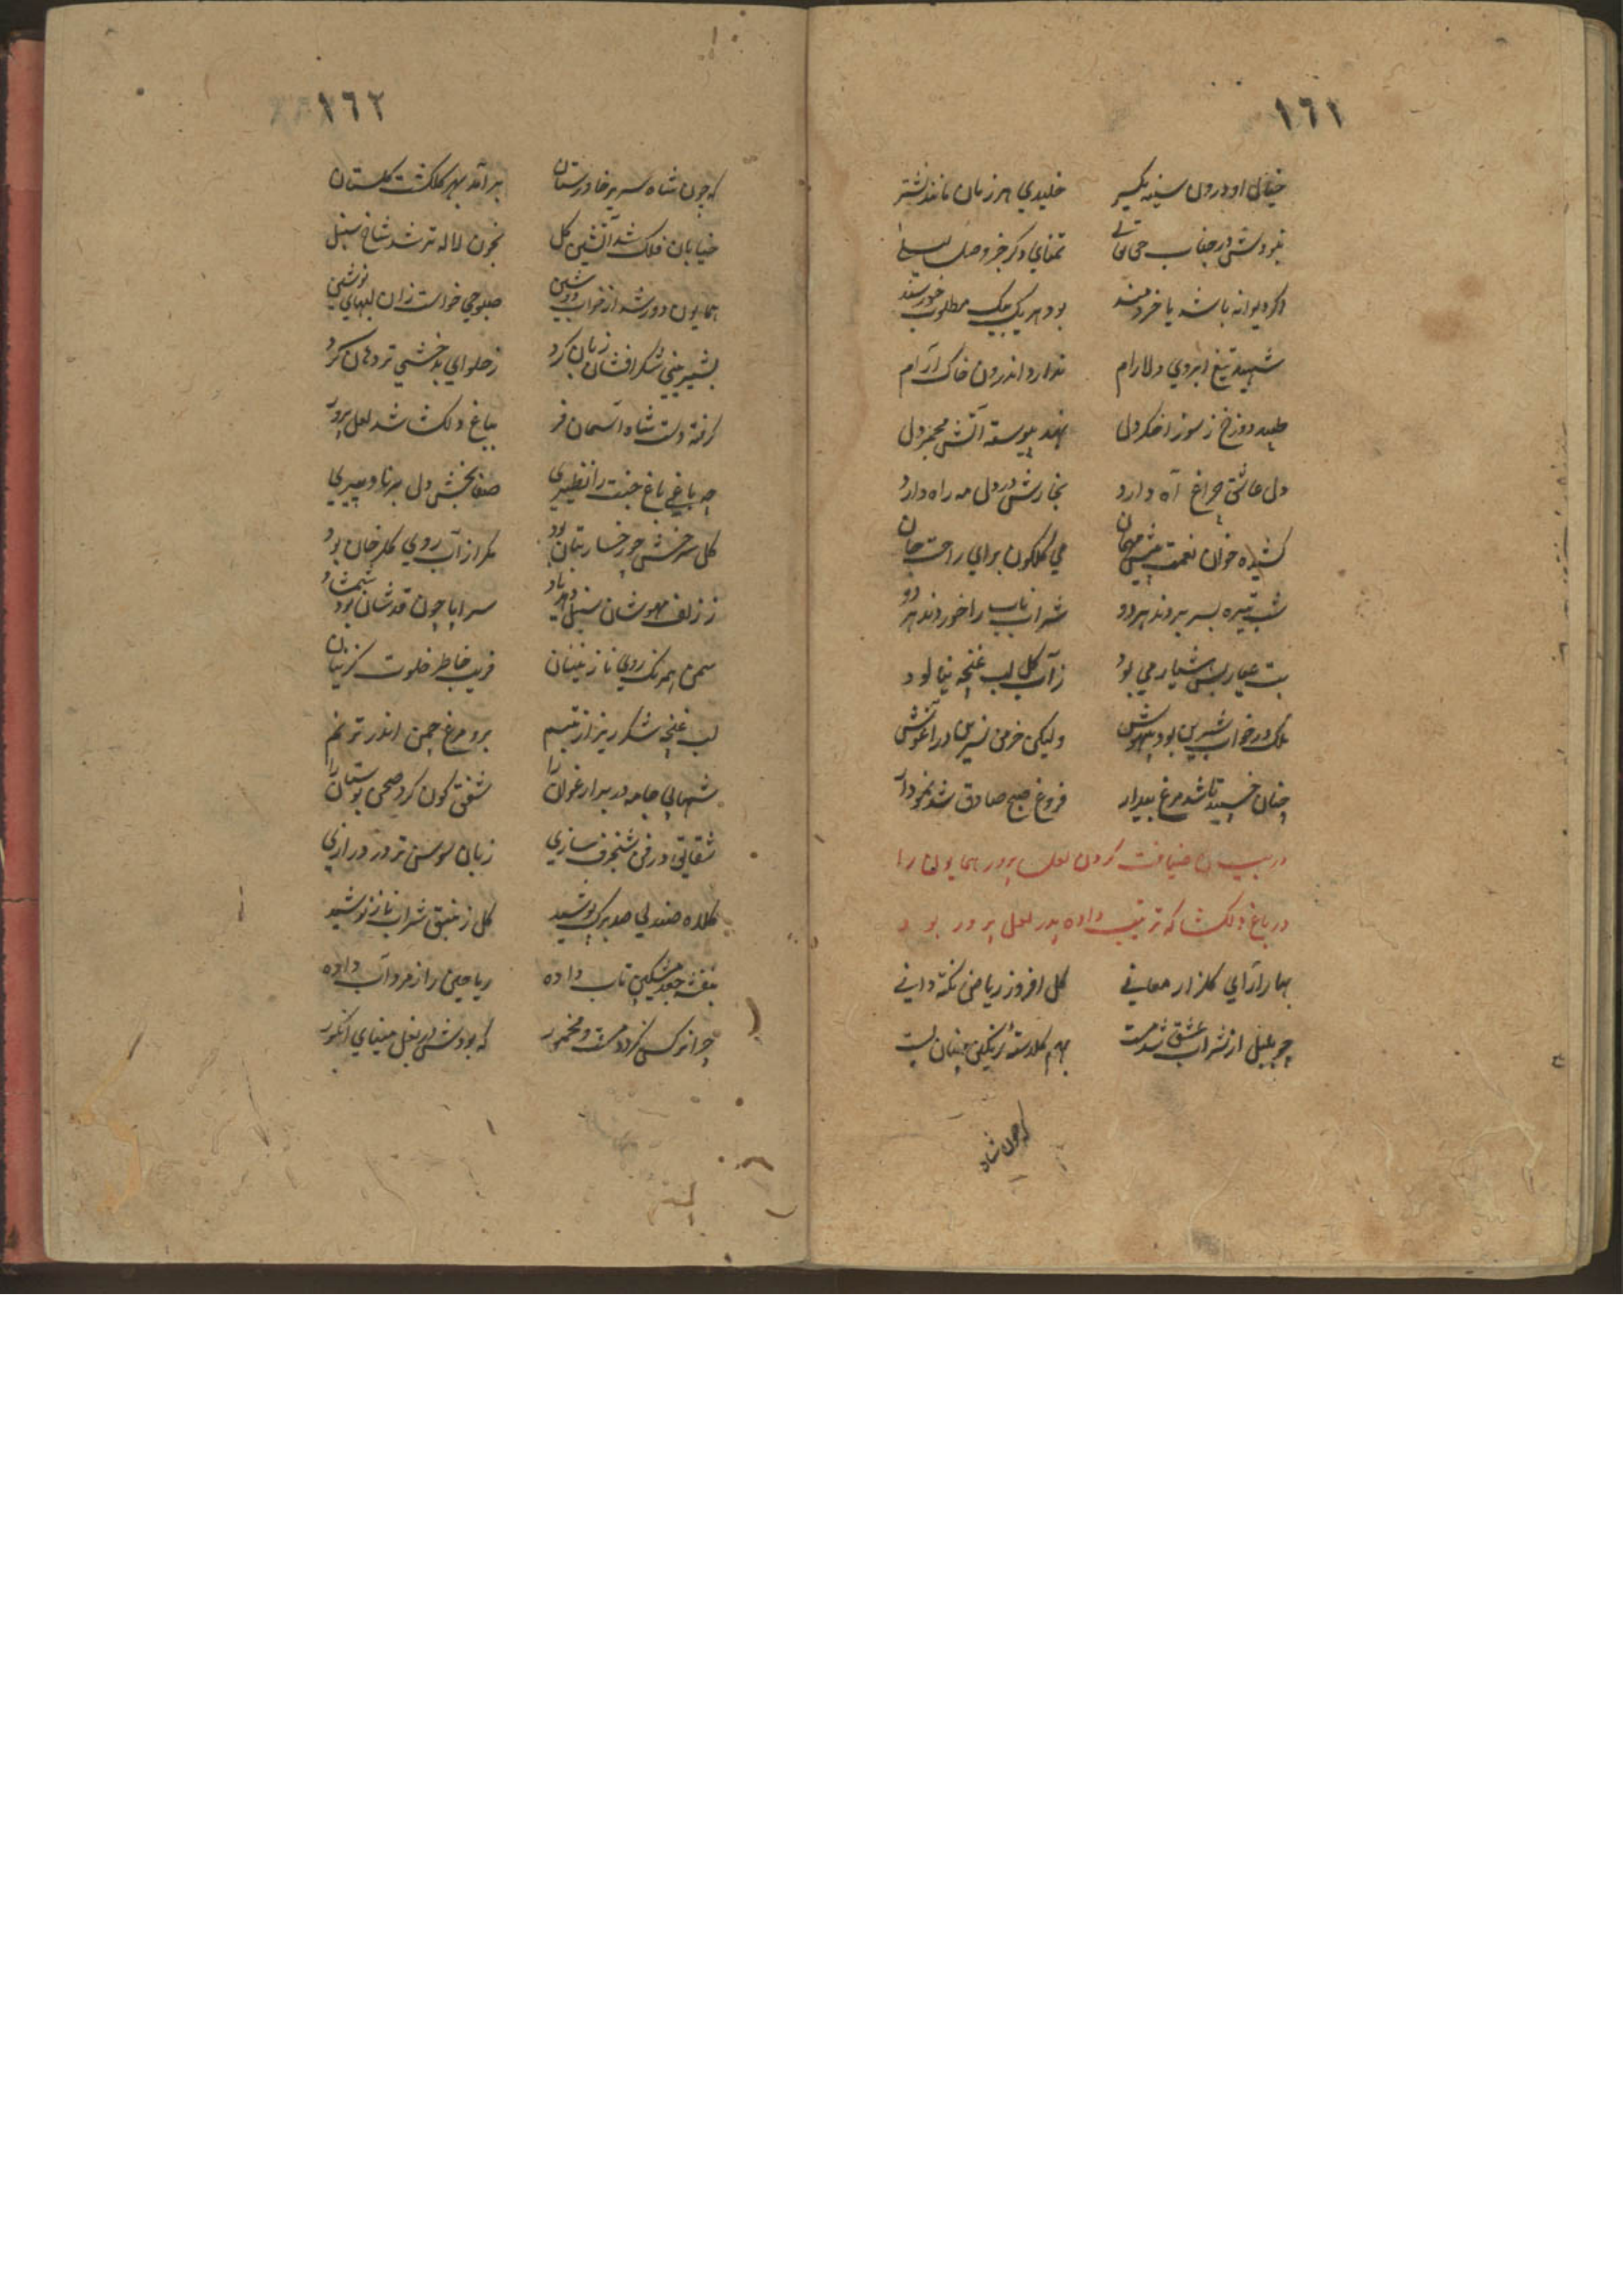 ١٦١
خیال او درون سینه یکسر خلیدی هر زمان مانند نشتر
نبودش در جناب حی تمنای دگر جز وصل لیلا
اگر دیوانه باشد یا خردمند بود هر یک بیک مطلوب خورسند
شهید تیغ ابروی دلارام ندارد اندرون خاک آرام
دوزخ ز سوز اخگر دل نهد پیوسته آتش مجمر دل
دل عاشق چراغ آه دارد بخارش در دل مه راه دارد
کشیده خوان نعمت پیش مهمان می گلگون برای راحت جان
شب تیره بسر بردند هر دو شراب ناب را خوردند هر دو
بت عیار بس هشیار می بود ز آب گل لب غنچه نیالود
ملک در خواب شیرین بود بیهوش ولیکن خرمن نسرین در آغوش
چنان خسپید تا شد مرغ بیدار فروغ صبح صادق شد نمودار
در بیان ضیافت کردن لعل پرور همایون را
در باغ دلکشا که ترتیب داده پدر لعل پرور بود
بهار آرای گلزار معانی گل افروز ریاض نکته دانی
چو بلبل از شراب عشق شد مست بهم گلدستهٔ رنگین چنان بست
که چون شاه
١٦٢
که چون شاه سریر خاورستان برآمد بهر گلگشت گلستان
خیابان فلک شد آتشین گل بخون لاله تر شد شاخ سنبل
همایون دور شد از خواب دوشین صبوحی خواست زان لبهای نوشین
بشیرینی شکر افشان زبان کرد ز حلوای بدخشی تر دهان کرد
گرفته دست شاه آسمان فر بباغ دلکشا شد لعل پرور
چه باغی باغ جنت را نظیری صفا بخش دل برنا و پیری
گل سرخش چو رخسار بتان بود مگر از آب روی گلرخان بود
ز زلف مهوشان سنبل دهد یاد سراپا چون قدشان بود شمشاد
سمن همرنگ روی نازنینان فریب خاطر خلوت گزینان
لب غنچه شکرریز از تبسم برو مرغ چمن اندر ترنم
شهابی جامه در بر ارغوان را شفق گون کرد صحن بوستان را
شقایق در فن شنجرف سازی زبان سوسن تر در درازی
کلاه صندلی صدبرگ پوشید گل زنبق شراب ناز نوشید
بنفشه جعد مشکین تاب داده ریاحین را زمرد آب داده
چرا نرگس نگردد مست و مخمور که بودش در بغل مینای انگور